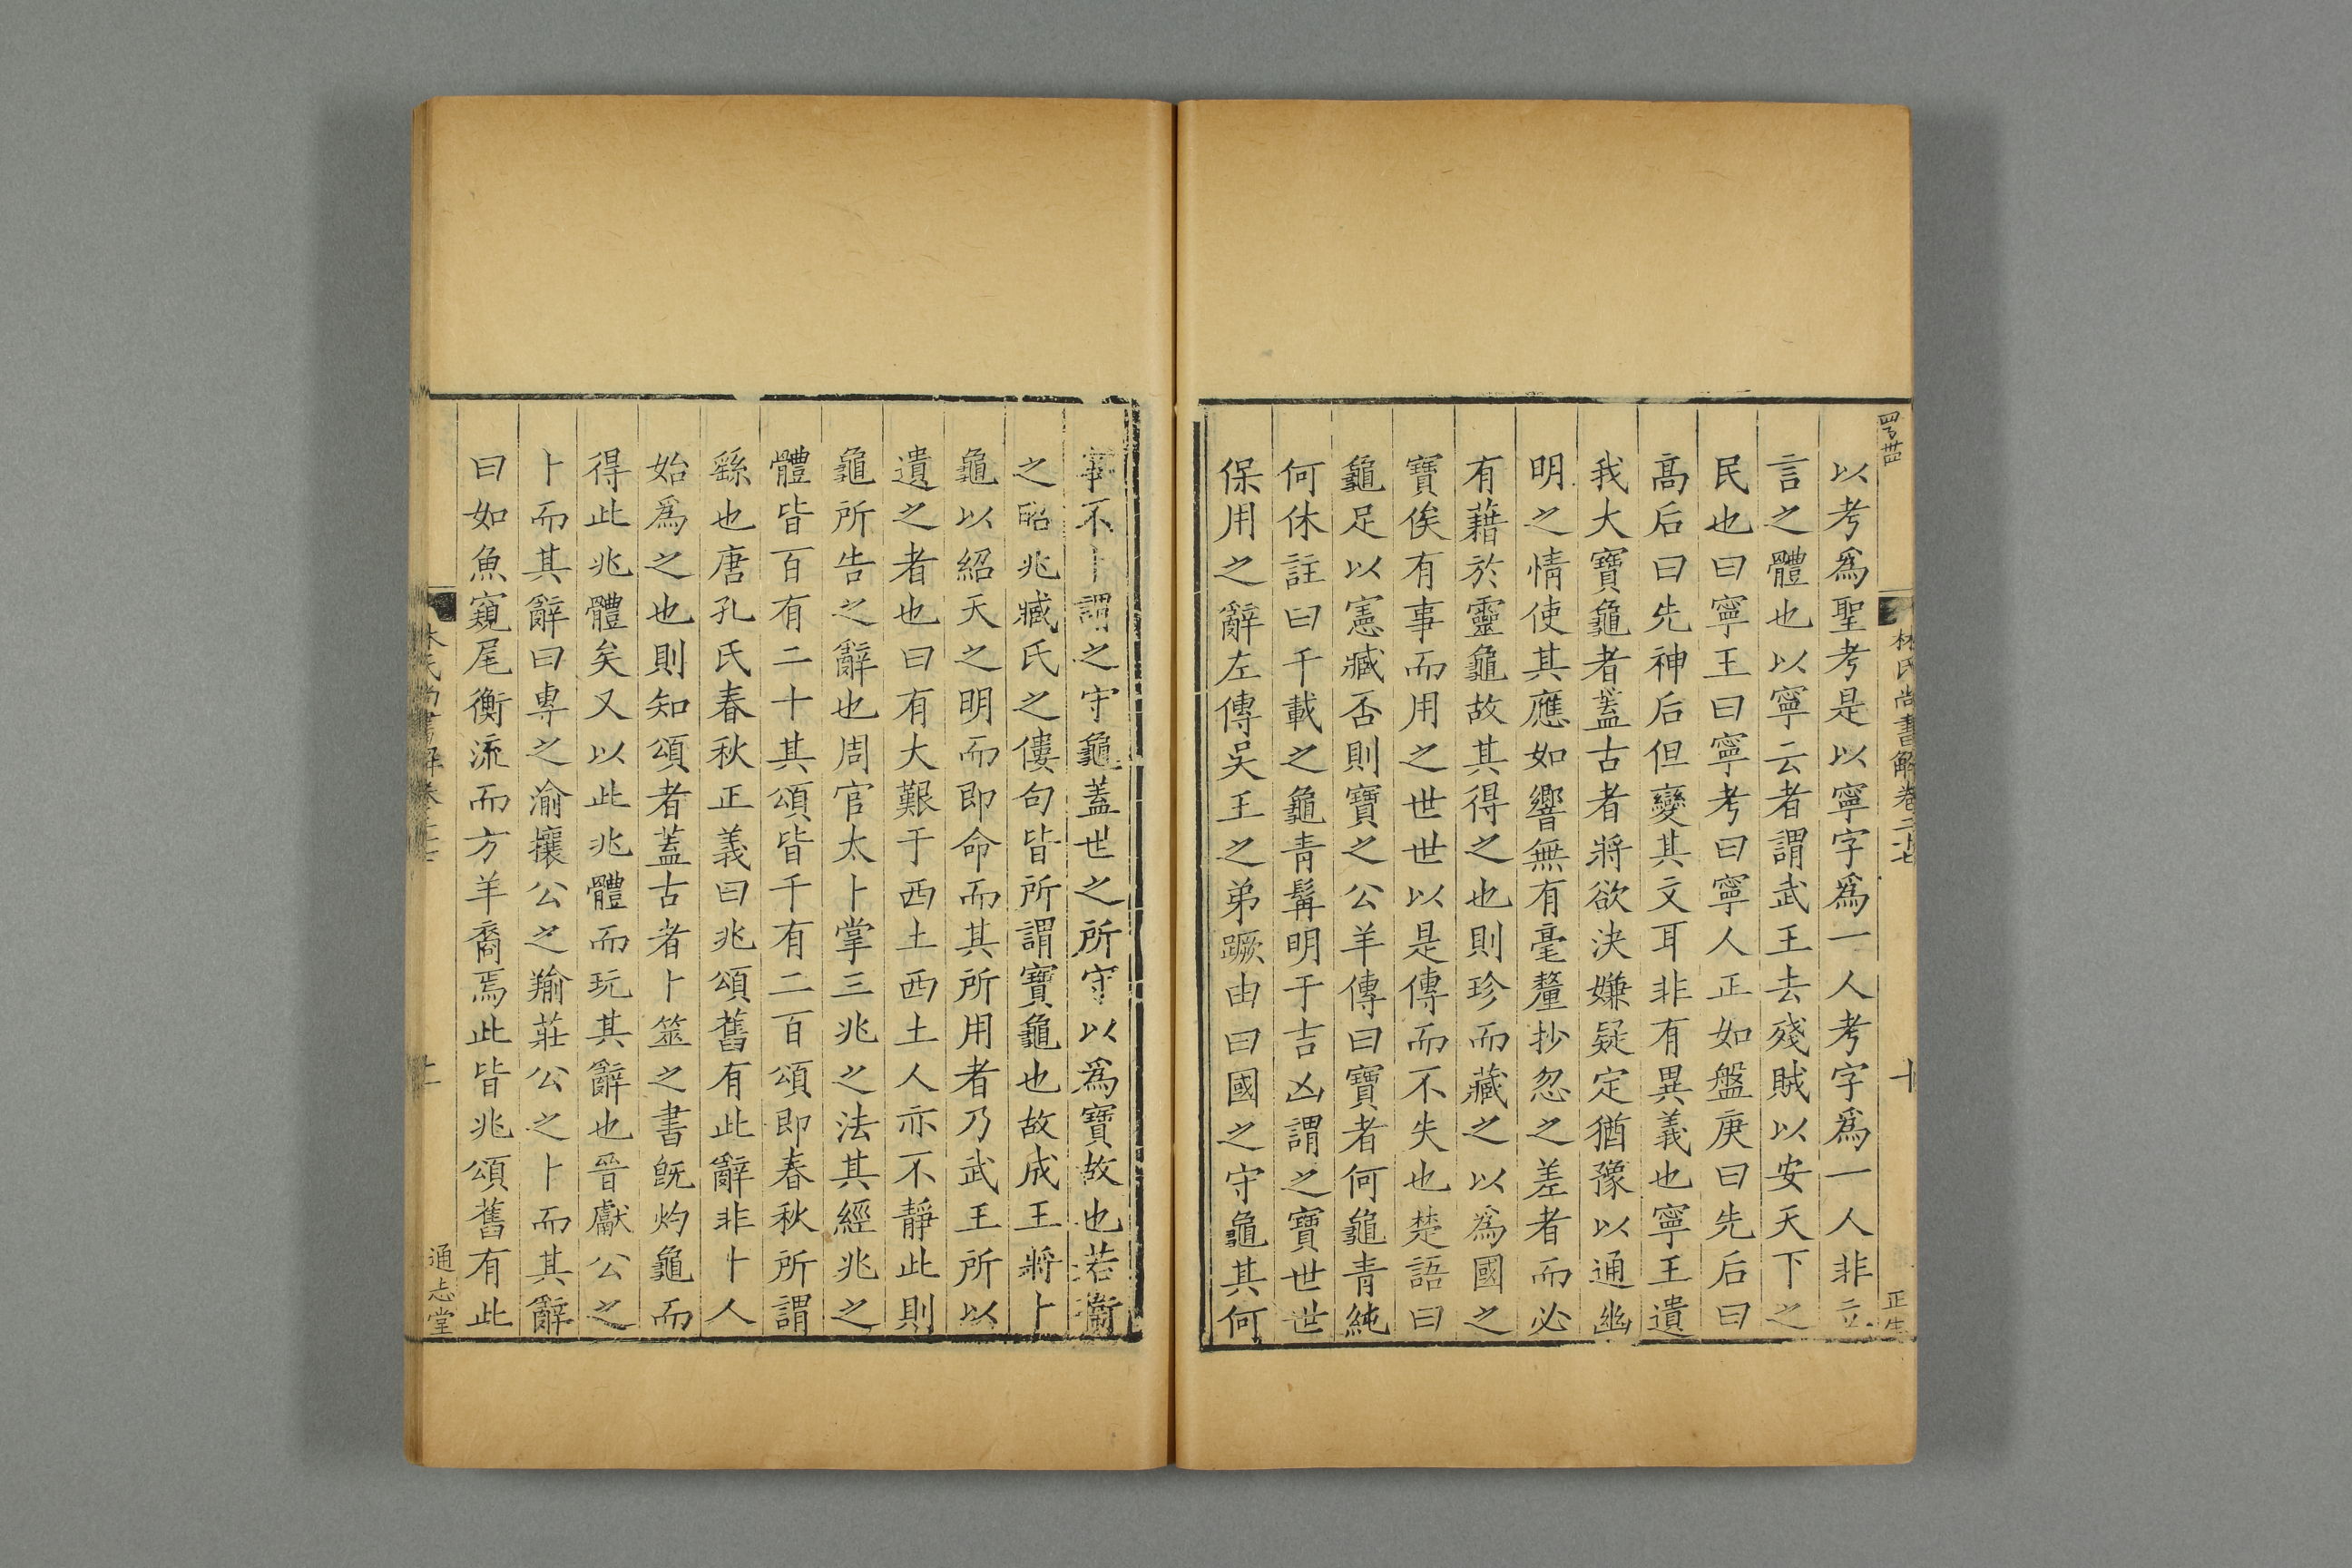 林氏尚書解卷二十七
十
以考爲聖考是以寧字爲一人考字爲一人非立
言之體也以寧云者謂武王去殘賊以安天下之
民也曰寧王曰寧考曰寧人正如盤庚曰先后曰
高后曰先神后但變其文耳非有異義也寧王遺
我大寶龜者蓋古者將欲決嫌疑定猶豫以通幽
明之情使其應如響無有毫釐抄忽之差者而必
有藉於靈龜故其得之也則珍而藏之以爲國之
寶俟有事而用之世世以是傳而不失也楚語曰
龜足以憲臧否則寶之公羊傳曰寶者何龜青純
何休註曰千載之龜青髯明于吉凶謂之寶世世
保用之辭左傳吳王之弟蹶由曰國之守龜其何
事不卜謂之守龜蓋世之所守以爲寶故也若衞
之昭兆臧氏之僂句皆所謂寶龜也故成王將卜
龜以紹天之明而即命而其所用者乃武王所以
遺之者也曰有大艱于西土西土人亦不靜此則
龜所告之辭也周官太卜掌三兆之法其經兆之
體皆百有二十其頌皆千有二百頌即春秋所謂
繇也唐孔氏春秋正義曰兆頌舊有此辭非卜人
始爲之也則知頌者蓋古者卜筮之書旣灼龜而
得此兆體矣又以此兆體而玩其辭也晉獻公之
卜而其辭曰專之渝攘公之羭莊公之卜而其辭
曰如魚窺尾衡流而方羊裔焉此皆兆頌舊有此
通志堂